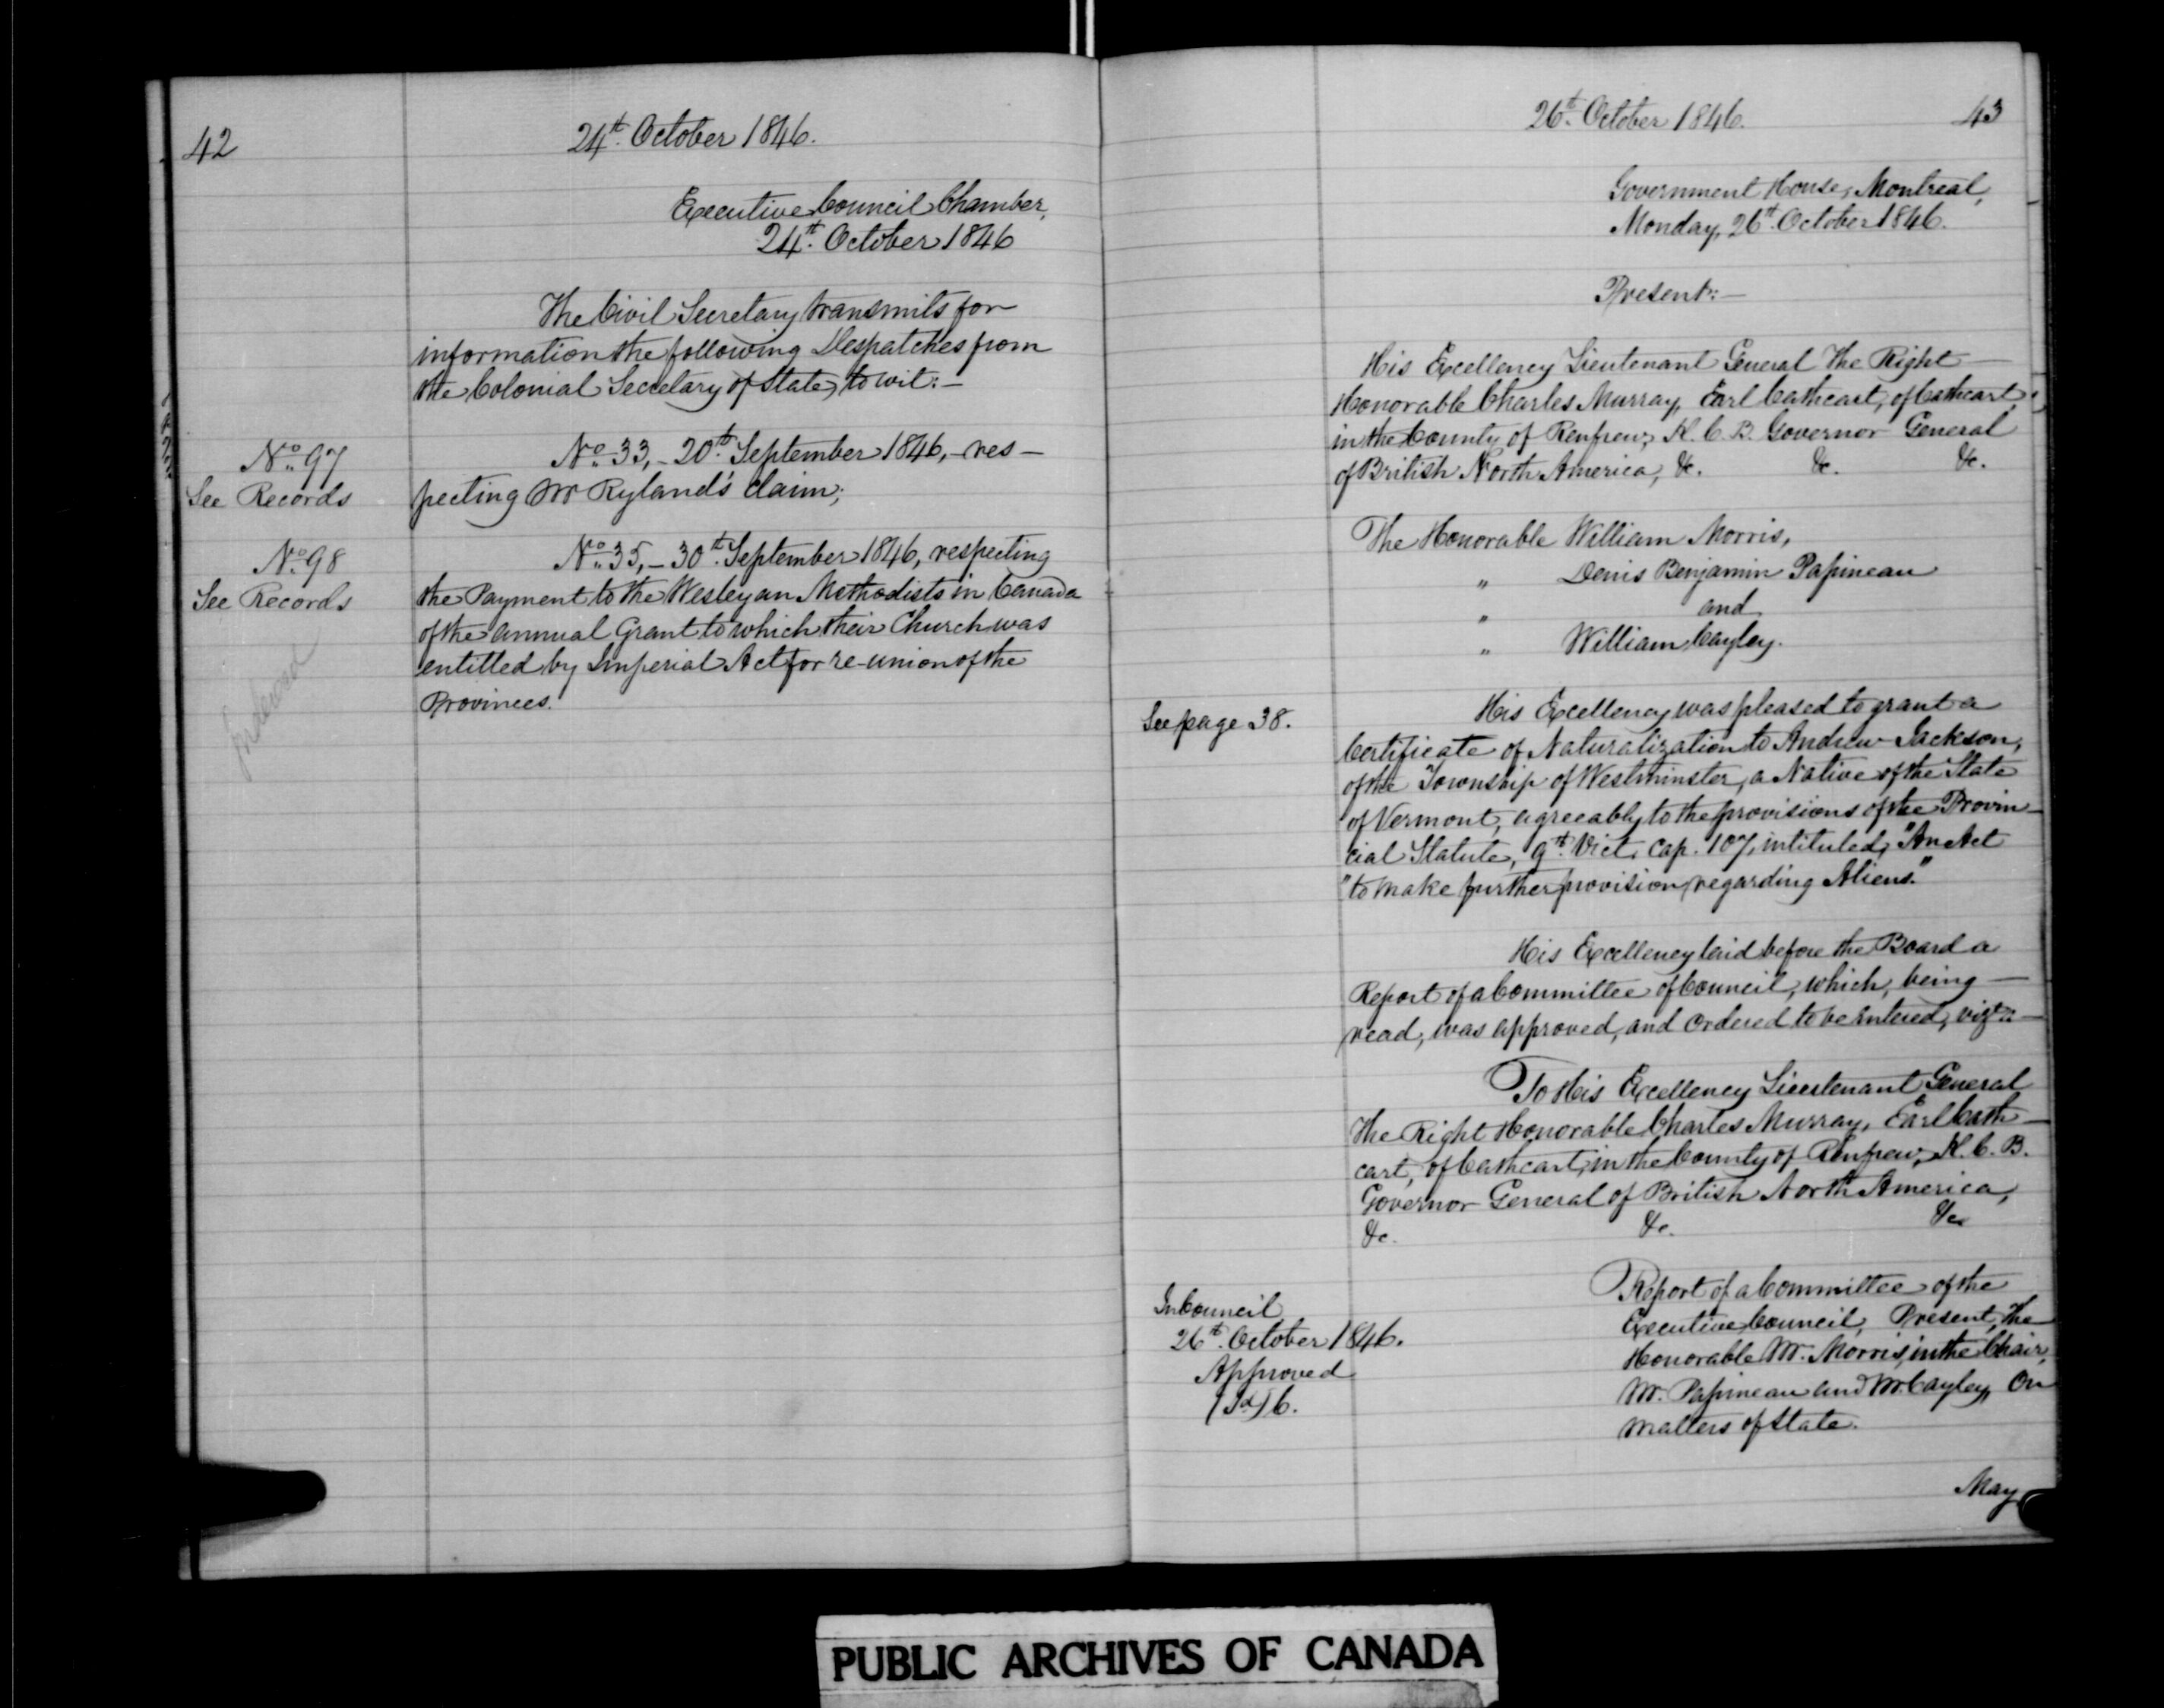 42
24th. October 1846.
Executive Council Chamber,
24th. October 1846
The Civil Secretary transmits for
information the following Despatches from
the Colonial Secretary of State, to wit:—
No. 97
See Records
No. 33,— 20th. September 1846,—res—
pecting Mr Ryland's claim;
No. 98
See Records
No. 35,— 30th. September 1846, respecting
the Payment to the Wesleyan Methodists in Canada
of the annual Grant to which their Church was
entitled by Imperial Act for re-union of the
Provinces.
26th. October 1846.
43
Government House, Montreal,
Monday, 26th. October 1846.
Present:—
His Excellency Lieutenant General The Right—
Honorable Charles Murray, Earl Cathcart, of Cathcart,
in the County of Renfrew, K. C. B. Governor General
of British North America, &c. &c. &c.
The Honorable William Morris,
" Denis Benjamin Papineau
" and
" William Cayley.
See page 38.
His Excellency was pleased to grant a
Certificate of Naturalization to Andrew Jackson,
of the Township of Westminster, a Native of the State
of Vermont, agreeably to the provisions of the Provin—
cial Statute, 9th. Vict. Cap. 107, intituled, "An Act
"to make further provision regarding Aliens."
His Excellency laid before the Board a
Report of a Committee of Council, which, being—
read, was approved, and ordered to be entered, vizt:—
To His Excellency Lieutenant General
The Right Honorable Charles Murray, Earl Cath—
cart, of Cathcart, in the County of Renfrew, K. C. B.
Governor General of British North America,
&c. &c. &c
In Council
26th. October 1846.
Approved
(Sd) C.
Report of a Committee of the
Executive Council, Present, The
Honorable Mr. Morris, in the Chair,
Mr. Papineau and Mr. Cayley, On
matters of State.
May
PUBLIC ARCHIVES OF CANADA